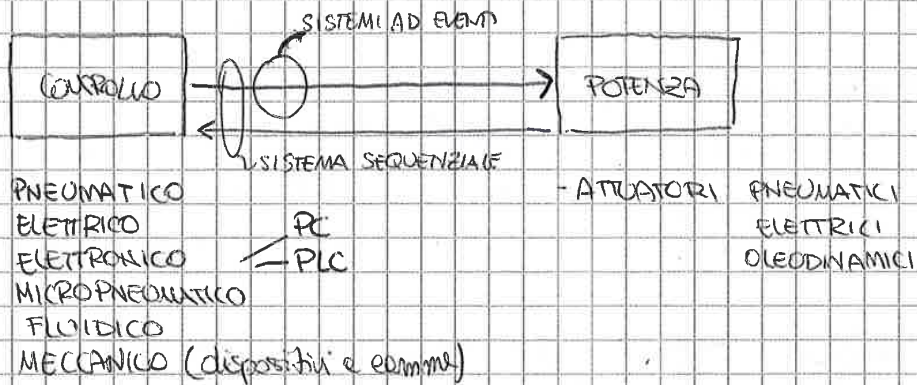 SISTEMI AD EVENTI
CONTROLLO
POTENZA
SISTEMA SEQUENZIALE
PNEUMATICO
ELETTRICO
ELETTRONICO
PC
PLC
MICROPNEUMATICO
FLUIDICO
MECCANICO (dispositivi a camme)
- ATTUATORI PNEUMATICI
ELETTRICI
OLEODINAMICI